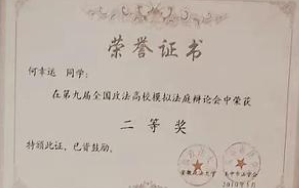 荣誉证书
何幸运 同学：
在第九届全国政法高校模拟法庭辩论会中荣获
二等奖
特颁此证，已资鼓励。